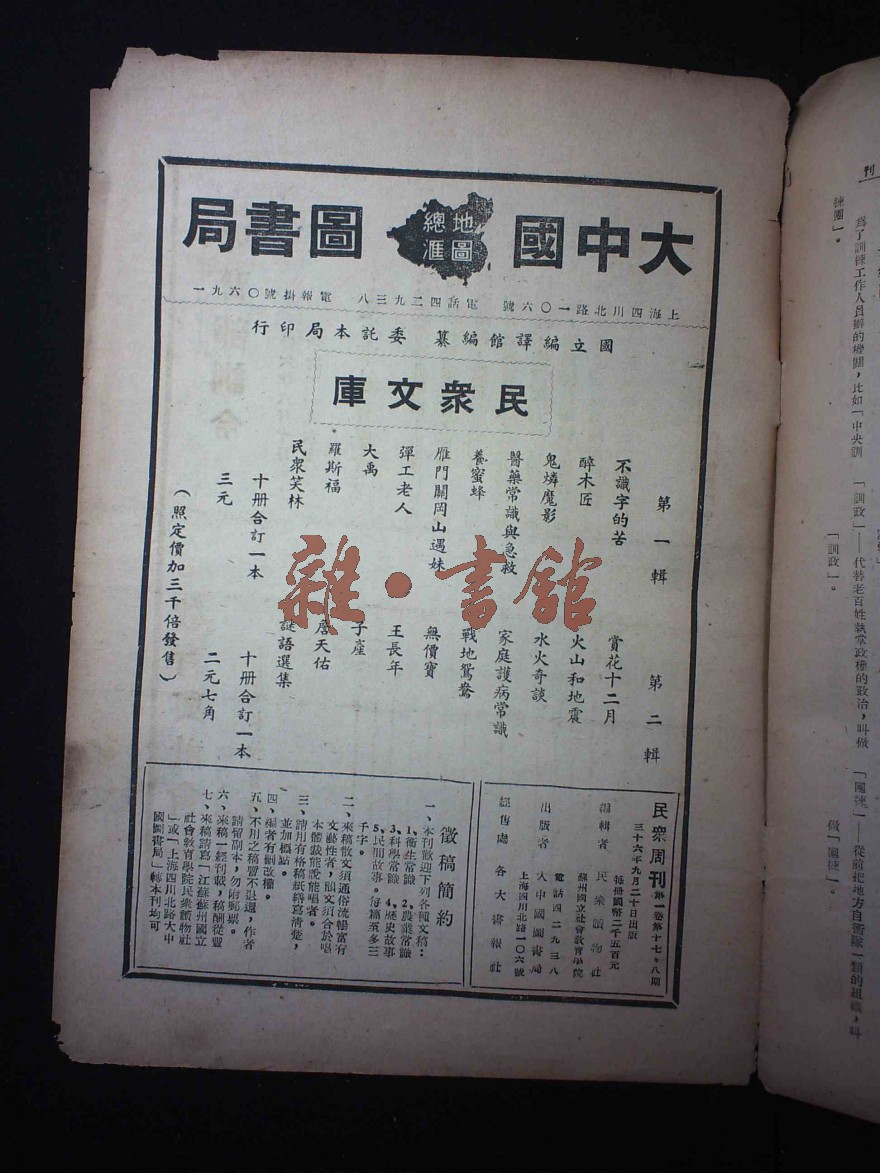 大中國圖書局
地圖總滙
上海四川北路一〇六號 電話四二九三八 電報掛號〇六九一
國立編譯館編纂 委託本局印行
民衆文庫
第一輯
不識字的苦
醉木匠
鬼燐魔影
醫藥常識與急救
養蜜蜂
雁門關岡山遇妹
彈工老人
大禹
羅斯福
民衆笑林
十册合訂一本
三元
第二輯
賞花十二月
火山和地震
水火奇談
家庭護病常識
戰地鴛鴦
無價寶
王長年
子產
詹天佑
謎語選集
十册合訂一本
二元七角
（照定價加三千倍發售）
雜·書館
民衆周刊 第一卷第十七、八期
三十六年九月二十日出版
每册國幣二千五百元
編輯者 民衆讀物社
蘇州國立社會教育學院
出版者 大中國圖書局
電話四二九三八
上海四川北路一〇六號
經售處 各大書報社
徵稿簡約
一、本刊歡迎下列各種文稿：
1、衛生常識 2、農業常識
3、科學常識 4、歷史故事
5、民間故事。每篇至多三
千字。
二、來稿散文須通俗流暢富有
文藝性者，韻文須合於唱
本體裁能說能唱者。
三、請用有格稿紙繕寫清楚，
並加標點。
四、編者有刪改權。
五、不用之稿豐不退還，作者
請留副本，勿附郵票。
六、來稿一經刊載，稿酬從豐
七、來稿請寫「江蘇蘇州國立
社會教育學院民衆讀物社
」或「上海四川北路大中
國圖書局」轉本刊均可
刊
練團」。
爲了訓練工作人員辦的機關，比如「中央訓
「訓政」——代替老百姓執掌政權的政治，叫做
「訓政」。
「團練」——從前把地方自衛隊一類的組織，叫
做「團練」。